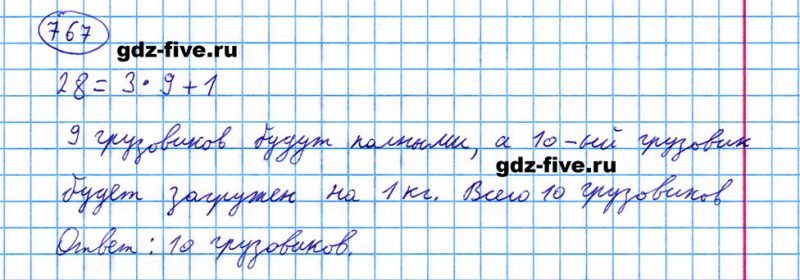 767
gdz-five.ru
28 = 3 · 9 + 1
9 грузовиков будут полными, а 10-ый грузовик
gdz-five.ru
будет загружен на 1 кг. Всего 10 грузовиков
Ответ: 10 грузовиков.